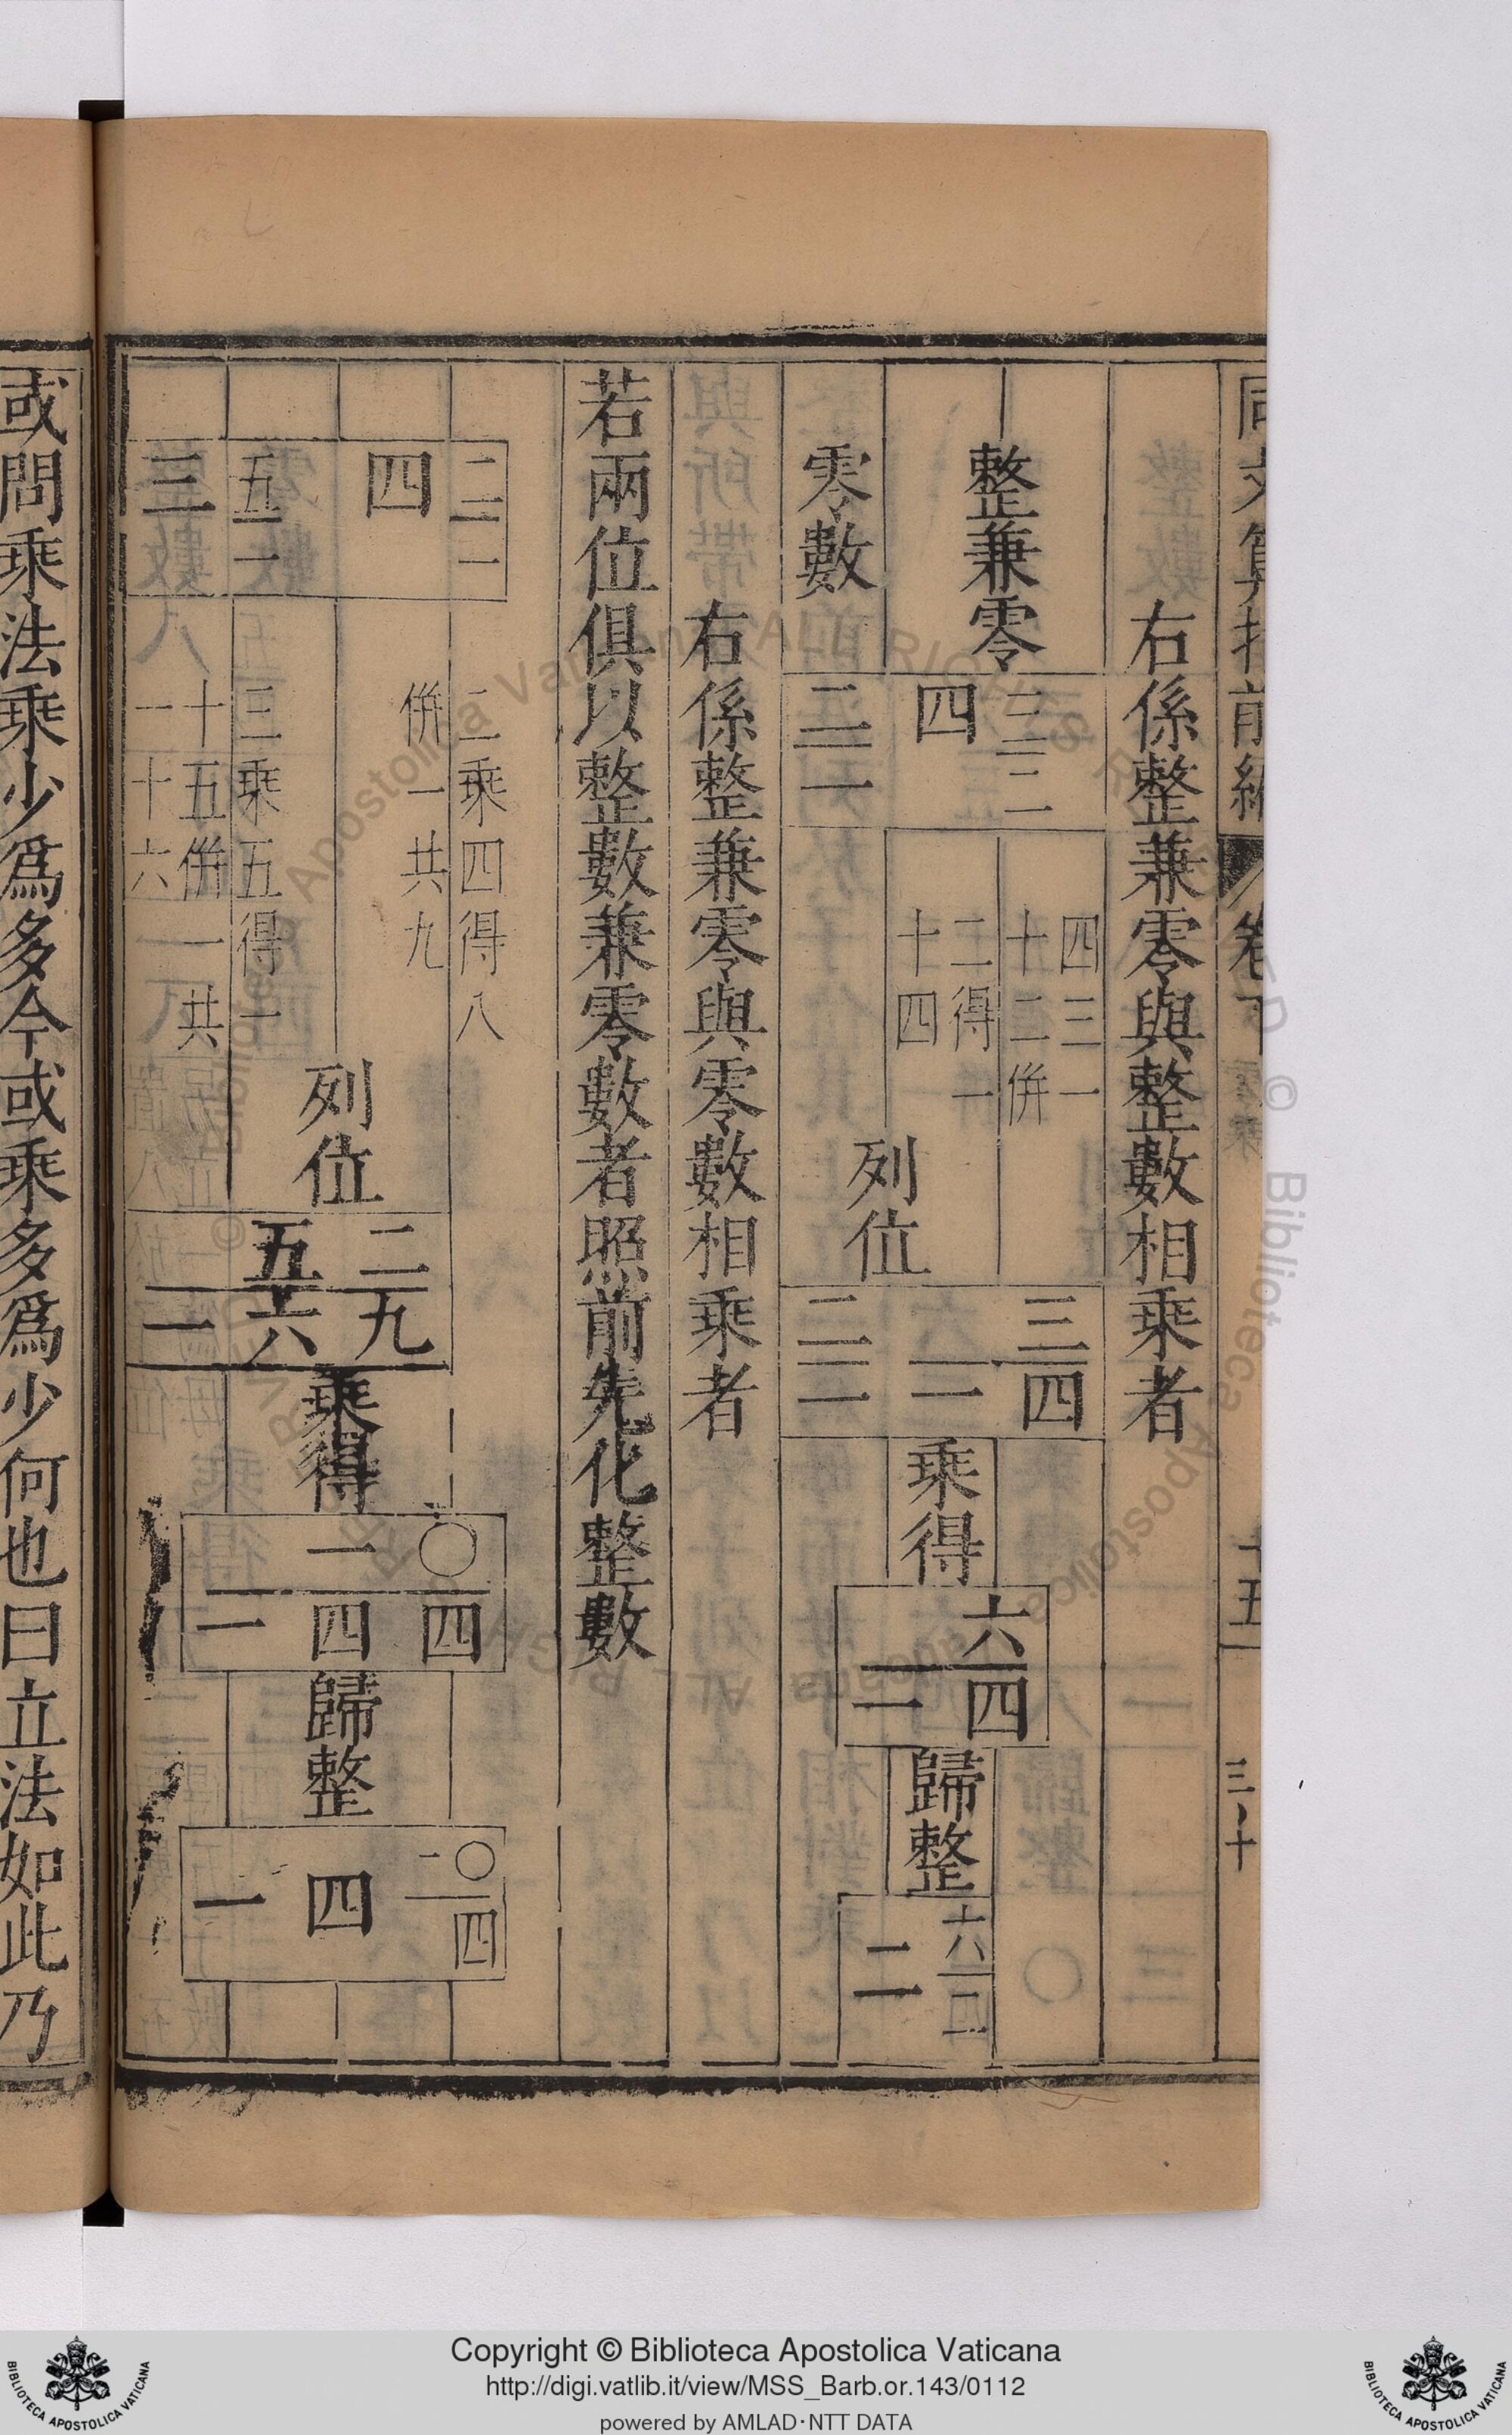 同文算指前編
卷下
十五
三十
右係整兼零與整數相乘者
整兼零
四
三二
零數
二一
四三一
十二併
二得一
十四
列位
三四
一
二一
乘得
六四
一
歸整
六二
二
右係整兼零與零數相乘者
若兩位俱以整數兼零數者照前先化整數
二一
四
五一
三
二乘四得八
併一共九
三乘五得一
十五併一共
一十六
列位
二九
五六
一
乘得
〇四
一四
一
歸整
〇四
一
四
一
或問乘法乘少爲多今或乘多爲少何也曰立法如此乃
Copyright © Biblioteca Apostolica Vaticana
http://digi.vatlib.it/view/MSS_Barb.or.143/0112
powered by AMLAD·NTT DATA
BIBLIOTECA APOSTOLICA VATICANA
BIBLIOTECA APOSTOLICA VATICANA